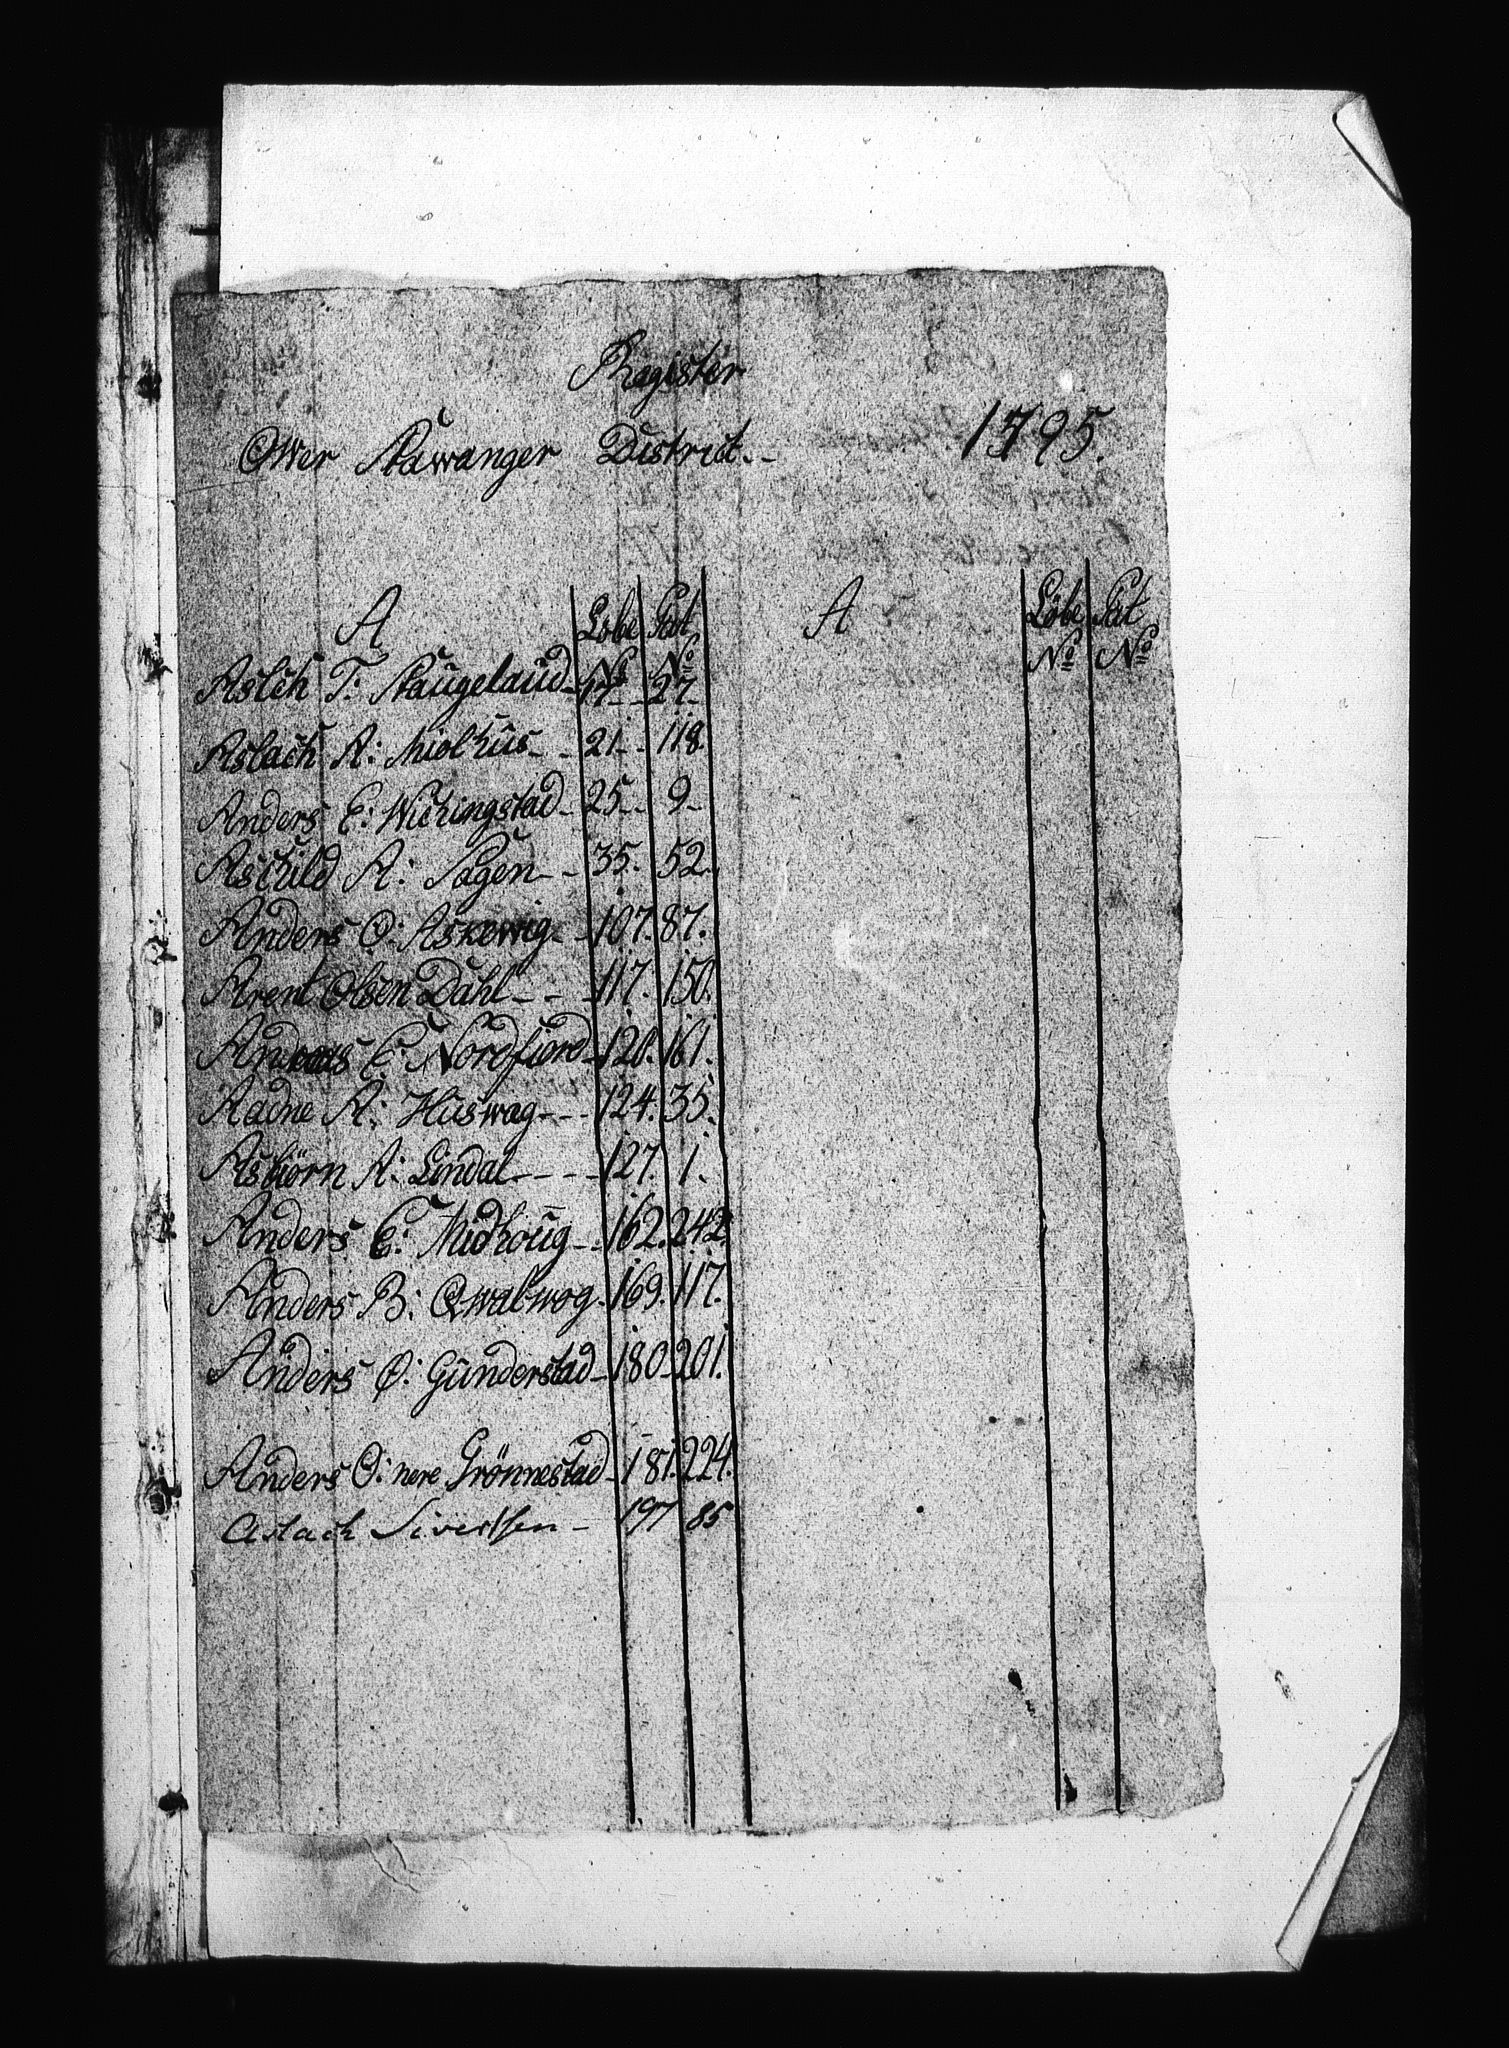 Register
Over Stawanger District. 1795.
A Løbe Pat A Løbe Pat
No No No No
Aslch T: Staugeland 17 27
Aslach A: Midthus 21 118
Anders E: Wichingstad 25 9
Askild A: Sagen 35. 52
Anders O: Askewig 107. 87.
Arent Olsen Dahl 117. 150.
Andreas E: Nordfiord 120. 161.
Aadne A: Huswag 124. 35.
Asbiørn A: Lindal 127. 1.
Anders E: Midhoug 162. 242
Anders B: Qwalwog 169. 117.
Anders O: Gunderstad 180 201.
Anders O: nere Grönnestad 181. 224.
Aslach Sivertsen 197 85